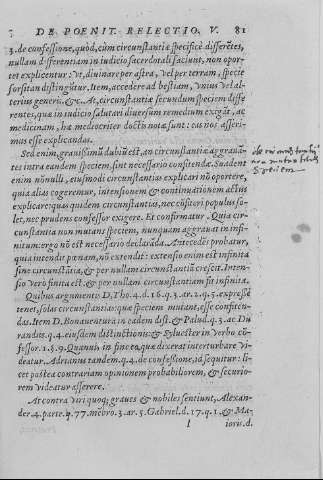 DE POENIT. RELECTIO. V. 81
3. de confessione, quòd, cùm circunstantiæ specificè differẽtes,
nullam differentiam in iudicio sacerdotali faciunt, non opor-
tet explicentur: Vt, diuinare per astra, vel per terram, specie
forsitan distinguitur. Item, accedere ad bestiam, vnius vel al-
terius generis, &c. At, circunstantiæ secundum speciem diffe
rentes, quæ in iudicio salutari diuersum remedium exigūt, ac
medicinam, hæ mediocriter doctis notæ sunt: eas nos asseri-
mus esse explicandas.
Sed enim, grauissimū dubiū est, an circunstantiæ aggrauā-
tes intra eandem speciem, sint necessariò confitendæ. Suadent
enim nonnulli, eiusmodi circunstantias explicari nō oportere,
quia aliàs cogeremur, intensionem & continuationem actus
explicare: quas quidem circunstantias, nec cōfiteri populus so-
let, nec prudens confessor exigere. Et confirmatur. Quia cir-
cunstantia non mutans speciem, nunquam aggrauat in infi-
nitum: ergo nō est necessariò declarāda. Antecedēs probatur,
quia intendit pœnam, nō extendit: extensio enim est infinita
sine circunstātia, & per nullam circunstantiā crescit. Inten-
sio verò finita est, & per nullam circunstantiam fit infinita.
Quibus argumentis D. Tho. 4. d. 16. q. 3. ar. 2. q. 5. expressè
tenet, solas circunstantias: quæ speciem mutant, esse confiten-
das. Item D. Bonauentura in eadem dist. & Palud. q. 3. ac Du
randus. q. 4. eiusdem distinctionis: & Syluester in verbo cō-
fessor. 1. §. 9. Quanuis in fine ea quæ dixerat interturbare vi-
deatur. Adrianus tandem. q. 4. de confessione, id sequitur: li-
cet postea contrariam opinionem probabiliorem, & securio-
rem videatur asserere.
At contra viri quoq; graues & nobiles sentiunt, Alexan-
der. 4. parte. q. 77. mēbro. 3. ar. 5. Gabriel. d. 17. q. 1. & Ma-
l ioris. d.